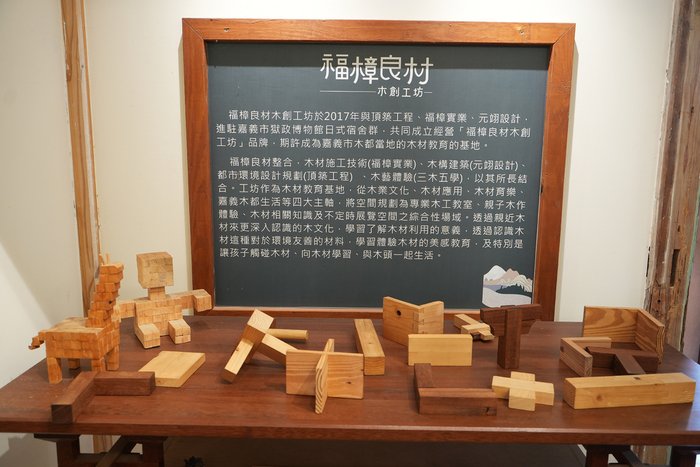 福樟良材
木創工坊
福樟良材木創工坊於2017年與頂築工程、福樟實業、元翊設計，
進駐嘉義市獄政博物館日式宿舍群，共同成立經營「福樟良材木創
工坊」品牌，期許成為嘉義市木都當地的木材教育的基地。
福樟良材整合，木材施工技術(福樟實業)、木構建築(元翊設計)、
都市環境設計規劃(頂築工程)、木藝體驗(三木五學)，以其所長結
合。工坊作為木材教育基地，從木業文化、木材應用、木材育樂、
嘉義木都生活等四大主軸，將空間規劃為專業木工教室、親子木作
體驗、木材相關知識及不定時展覽空間之綜合性場域，透過親近木
材來更深入認識的木文化，學習了解木材利用的意義，透過認識木
材這種對於環境友善的材料，學習體驗木材的美感教育，及特別是
讓孩子觸碰木材、向木材學習、與木頭一起生活。